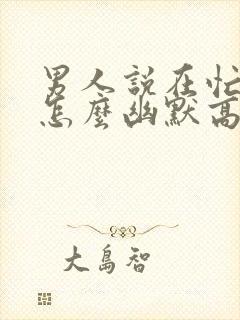 男人說在忙
怎麼幽默高
大島智